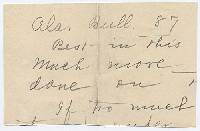 Ala. Bull. 87
Best in this
much more
done on
If too much